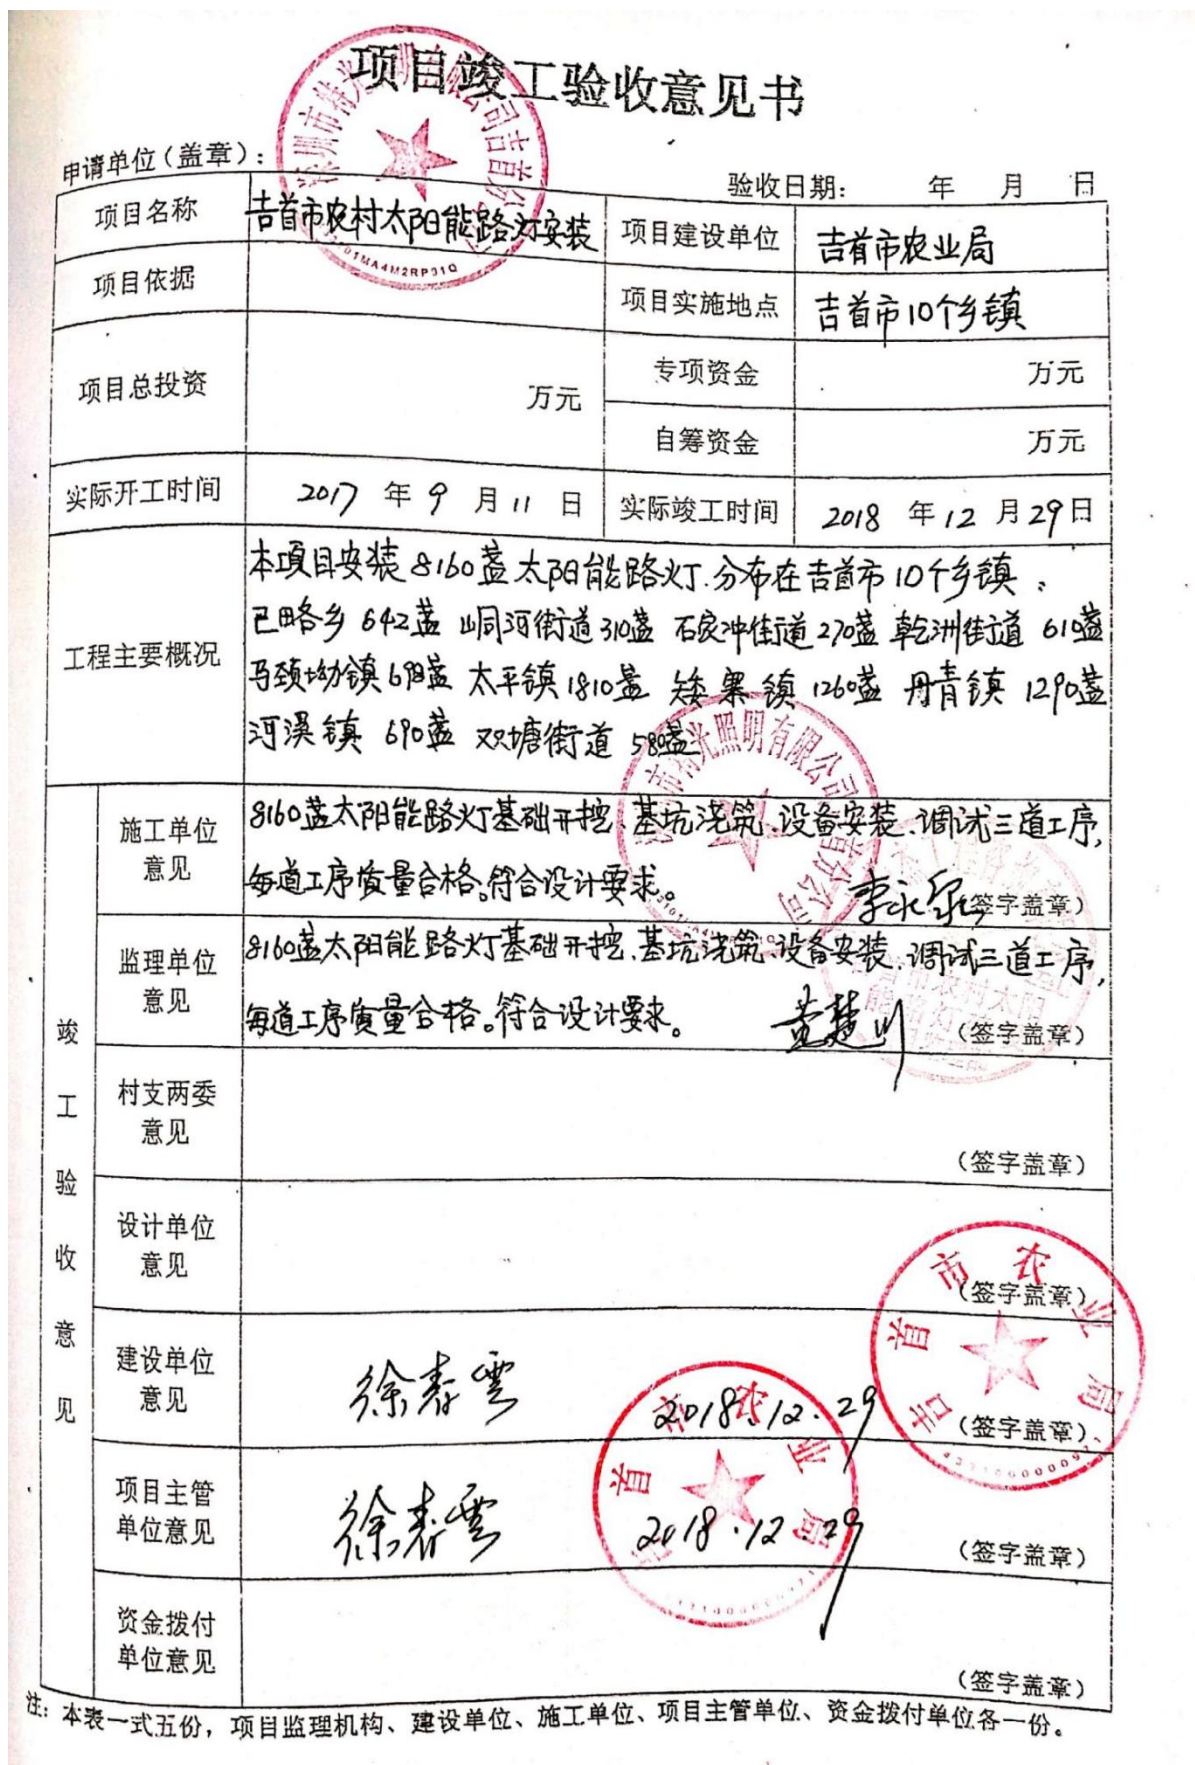 项目竣工验收意见书
申请单位（盖章）：
验收日期： 年 月 日
项目名称 吉首市农村太阳能路灯安装 项目建设单位 吉首市农业局
项目依据 项目实施地点 吉首市10个乡镇
项目总投资 万元 专项资金 万元
自筹资金 万元
实际开工时间 2017 年 9 月 11 日 实际竣工时间 2018 年 12 月 29 日
工程主要概况
本项目安装8160盏太阳能路灯.分布在吉首市10个乡镇：
已略乡 642盏 峒河街道310盏 石家冲街道270盏 乾州街道 610盏
马颈坳镇698盏 太平镇1810盏 矮寨镇 1260盏 丹青镇 1290盏
河溪镇 690盏 双塘街道 580盏
竣工验收意见
施工单位意见
8160盏太阳能路灯基础开挖、基坑浇筑、设备安装、调试三道工序,
每道工序质量合格。符合设计要求。
（签字盖章）
监理单位意见
8160盏太阳能路灯基础开挖、基坑浇筑、设备安装、调试三道工序,
每道工序质量合格。符合设计要求。
黄楚川 （签字盖章）
村支两委意见
（签字盖章）
设计单位意见
（签字盖章）
建设单位意见
徐春雲 2018.12.29 （签字盖章）
项目主管单位意见
徐春雲 2018.12.29 （签字盖章）
资金拨付单位意见
（签字盖章）
注：本表一式五份，项目监理机构、建设单位、施工单位、项目主管单位、资金拨付单位各一份。
吉首市农业局
吉首市农业局